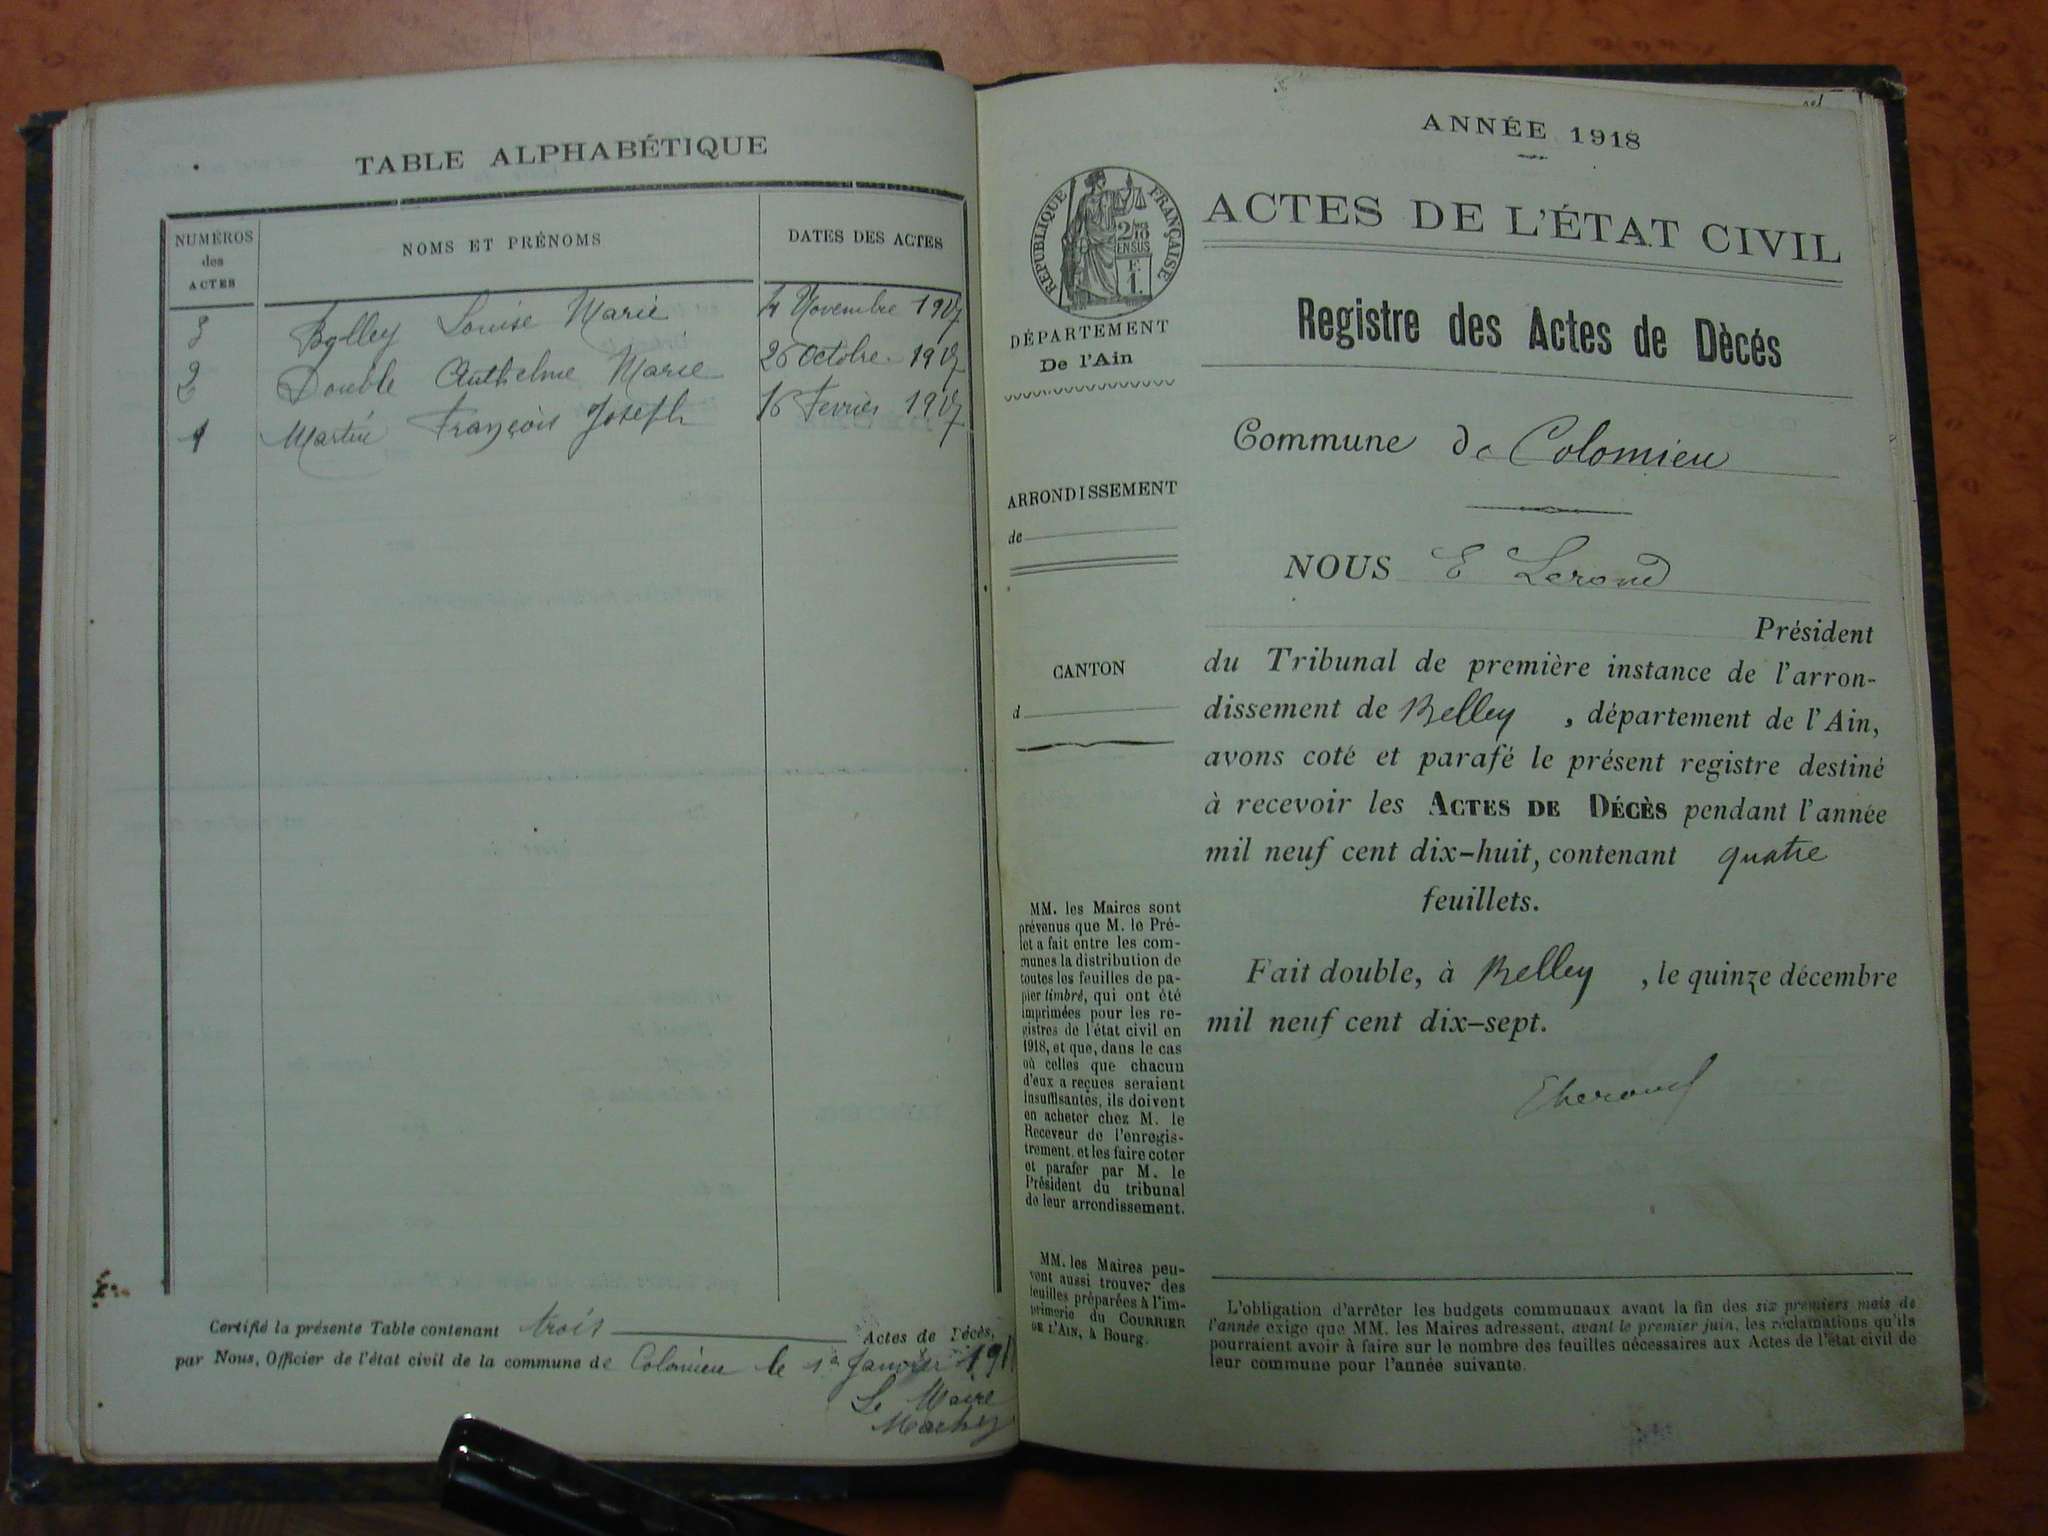 TABLE ALPHABÉTIQUE
NUMÉROS des ACTES NOMS ET PRÉNOMS DATES DES ACTES
3 Bolley Louise Marie 4 Novembre 1917
2 Double Anthelme Marie 26 Octobre 1917
1 Martin François Joseph 16 Fevrier 1917
Certifié la présente Table contenant trois Actes de Décès,
par Nous, Officier de l'état civil de la commune de Colomieu le 1er Janvier
Le Maire
ANNÉE 1918
RÉPUBLIQUE FRANÇAISE
2/10 EN SUS
F. 1.
DÉPARTEMENT
De l'Ain
ARRONDISSEMENT
de
CANTON
d
MM. les Maires sont
prévenus que M. le Pré-
fet a fait entre les com-
munes la distribution de
toutes les feuilles de pa-
pier timbré, qui ont été
imprimées pour les re-
gistres de l'état civil en
1918, et que, dans le cas
où celles que chacun
d'eux a reçues seraient
insuffisantes, ils doivent
en acheter chez M. le
Receveur de l'enregis-
trement, et les faire coter
et parafer par M. le
Président du tribunal
de leur arrondissement.
MM. les Maires peu-
vent aussi trouver des
feuilles préparées à l'im-
primerie du COURRIER
DE L'AIN, à Bourg.
ACTES DE L'ÉTAT CIVIL
Registre des Actes de Dècés
Commune de Colomieu
NOUS E Lerond
Président
du Tribunal de première instance de l'arron-
dissement de Belley, département de l'Ain,
avons coté et parafé le présent registre destiné
à recevoir les ACTES DE DÉCÈS pendant l'année
mil neuf cent dix-huit, contenant quatre
feuillets.
Fait double, à Belley, le quinze décembre
mil neuf cent dix-sept.
L'obligation d'arrêter les budgets communaux avant la fin des six premiers mois de
l'année exige que MM. les Maires adressent, avant le premier juin, les réclamations qu'ils
pourraient avoir à faire sur le nombre des feuilles nécessaires aux Actes de l'état civil de
leur commune pour l'année suivante.